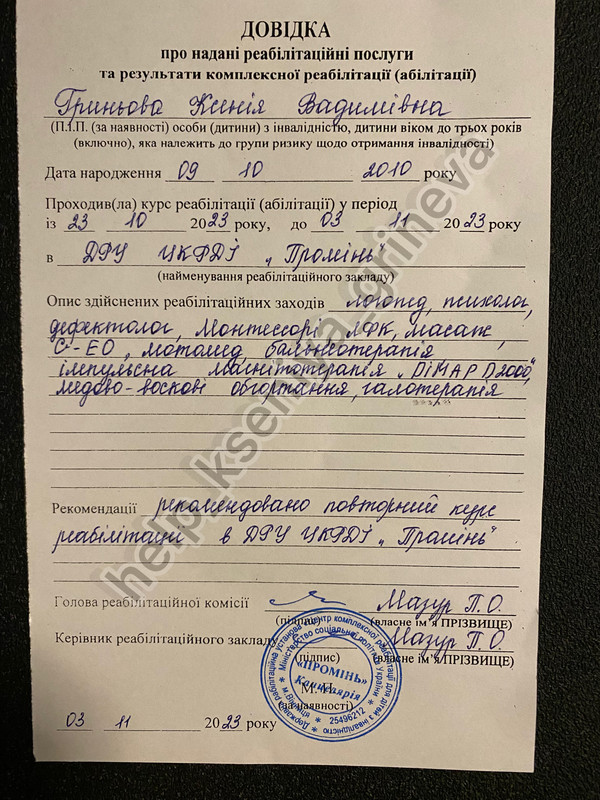 ДОВІДКА
про надані реабілітаційні послуги
та результати комплексної реабілітації (абілітації)
Гриньова Ксенія Вадимівна
(П.І.П. (за наявності) особи (дитини) з інвалідністю, дитини віком до трьох років
(включно), яка належить до групи ризику щодо отримання інвалідності)
Дата народження 09 10 2010 року
Проходив(ла) курс реабілітації (абілітації) у період
із 23 10 2023 року, до 03 11 2023 року
в ДРУ ЦКРДІ „Промінь"
(найменування реабілітаційного закладу)
Опис здійснених реабілітаційних заходів логопед, психолог,
дефектолог, Монтессорі ЛФК, масаж,
С-ЕО, мотомед, бальнеотерапія
імпульсна магнітотерапія „DIMAP D2000",
медово-воскові обгортання, галотерапія
Рекомендації рекомендовано повторний курс
реабілітації в ДРУ ЦКРДІ „Промінь"
Голова реабілітаційної комісії Мазур П.О.
(підпис) (власне ім'я ПРІЗВИЩЕ)
Керівник реабілітаційного закладу Мазур П.О.
(підпис) (власне ім'я ПРІЗВИЩЕ)
«ПРОМІНЬ»
Канцелярія
М.П.
(за наявності)
25496212
м.Вінниця
Державна реабілітаційна установа Центр комплексної реабілітації для дітей з інвалідністю
Міністерство соціальної політики України
03 11 2023 року
help_kseniya_grineva